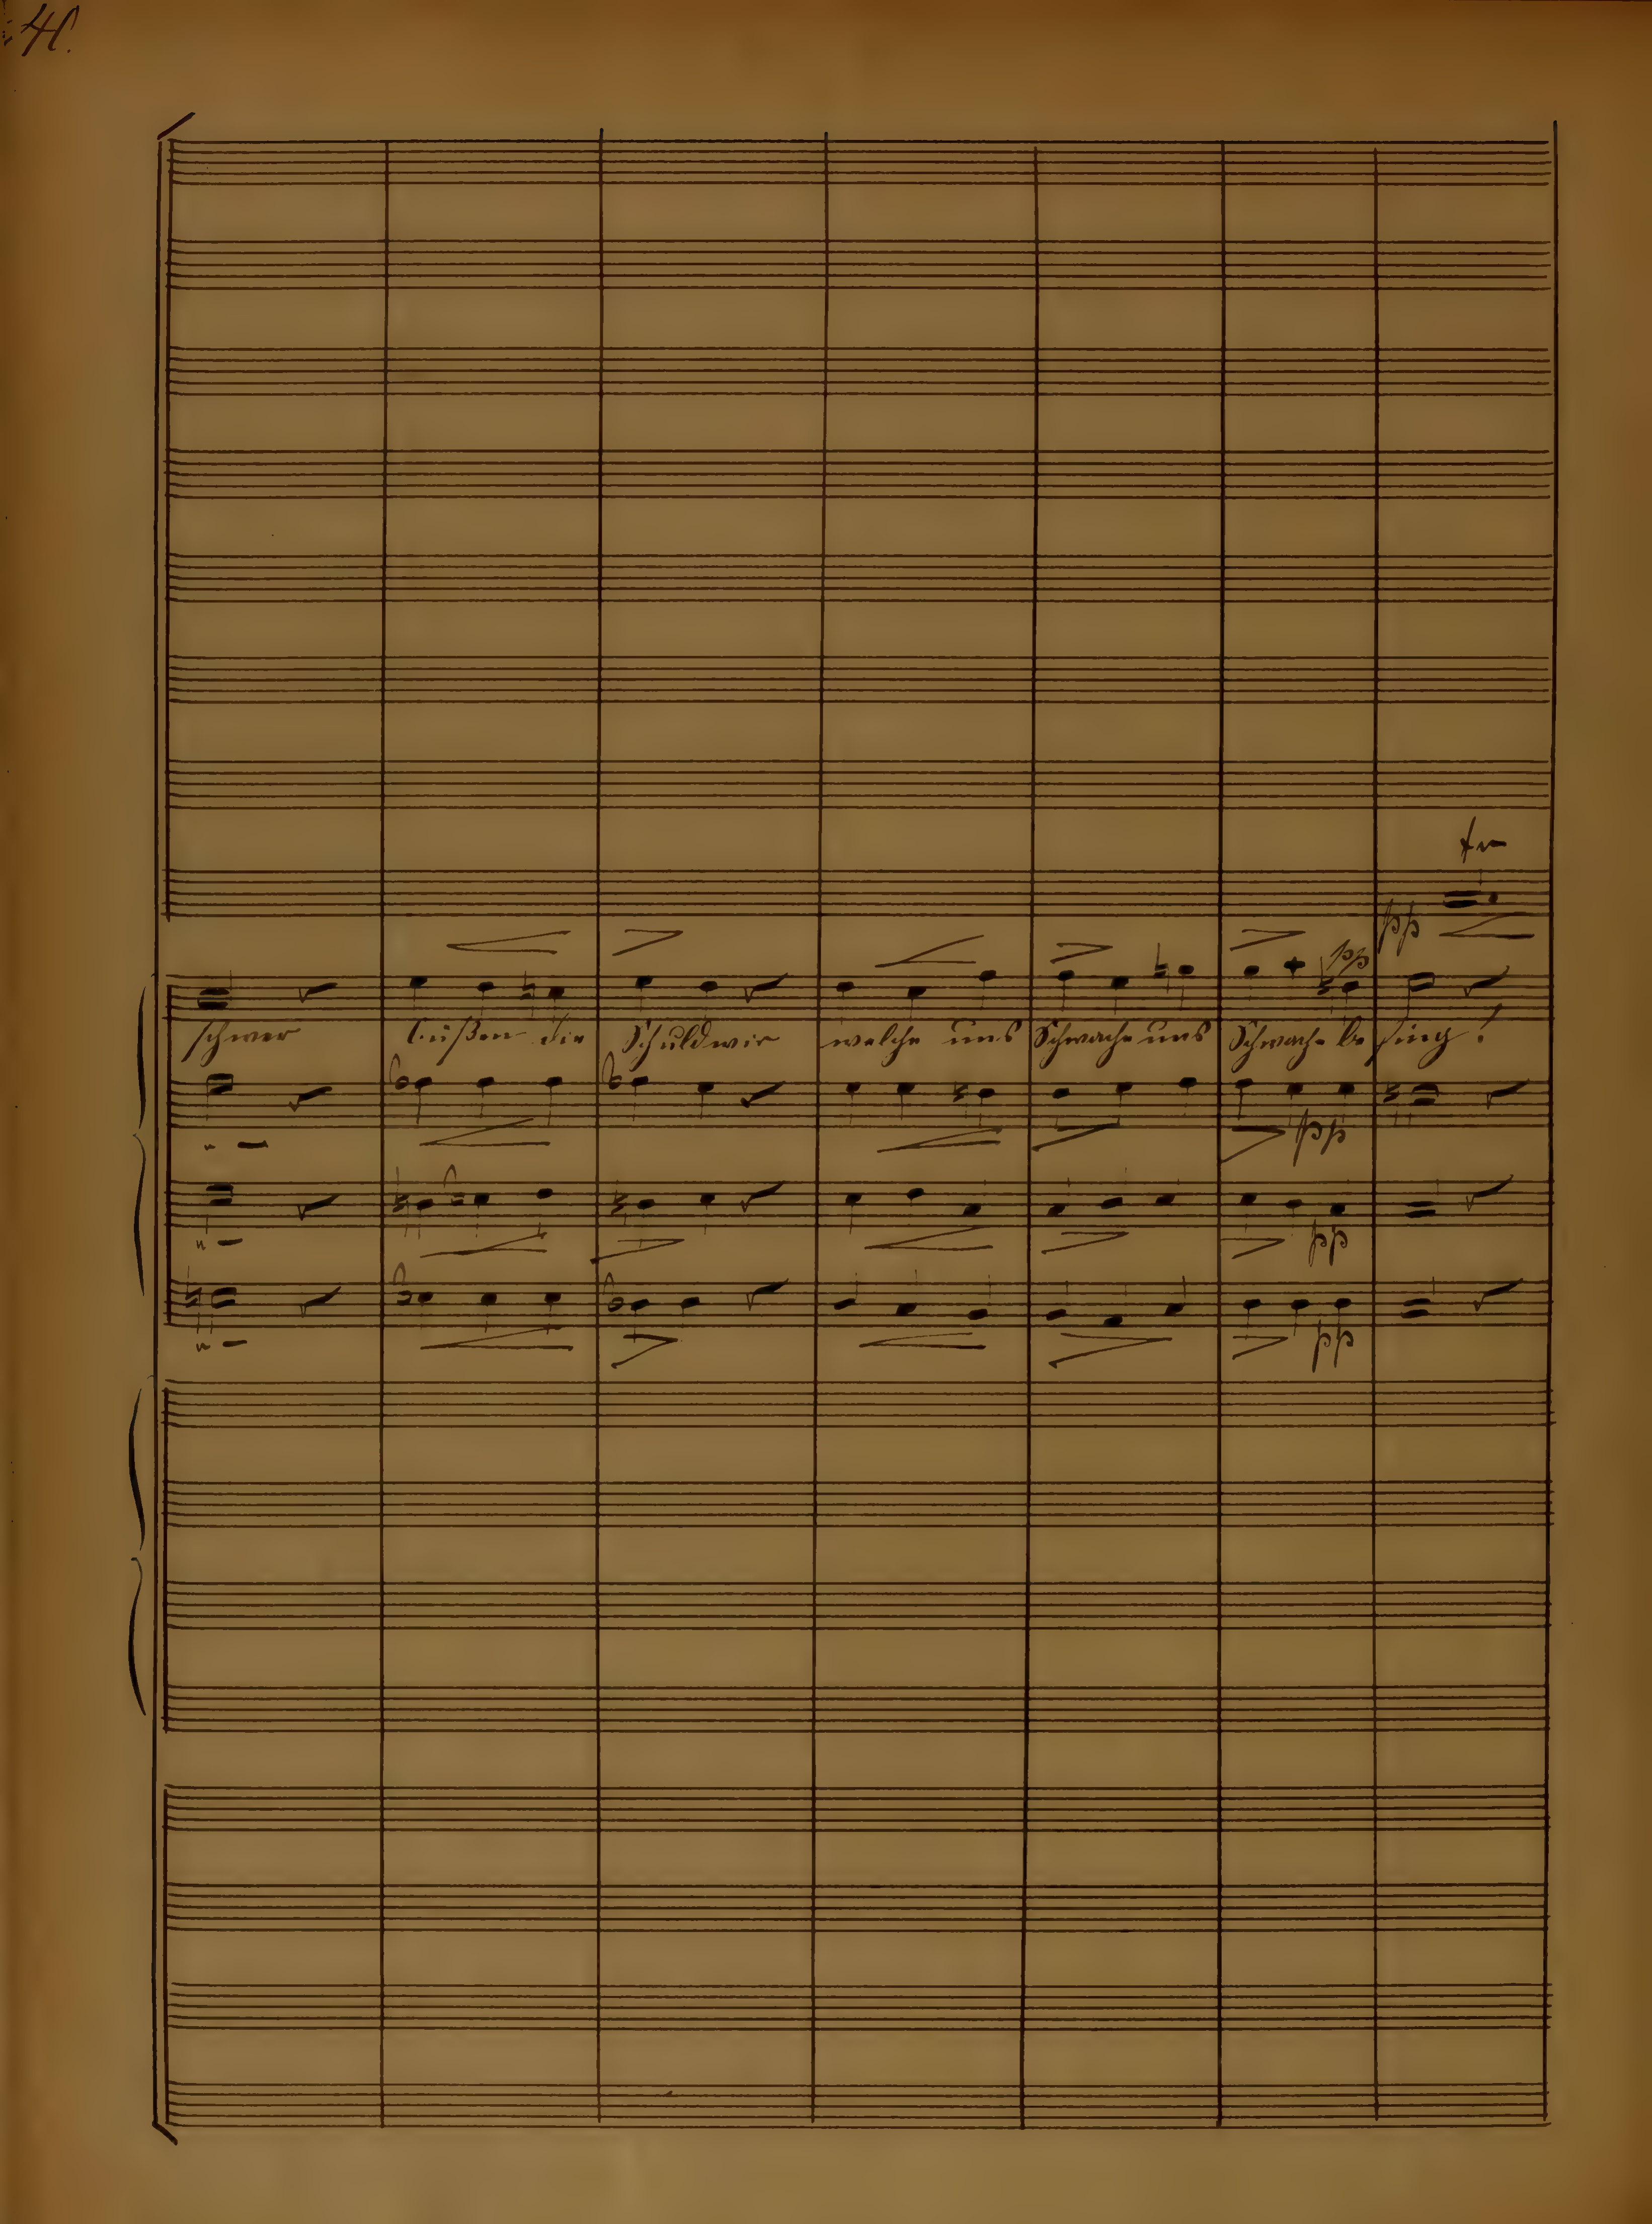 pp
schwer büßen die Schuld wir welche uns Schwache uns Schwache be
pp
pp
pp
pp